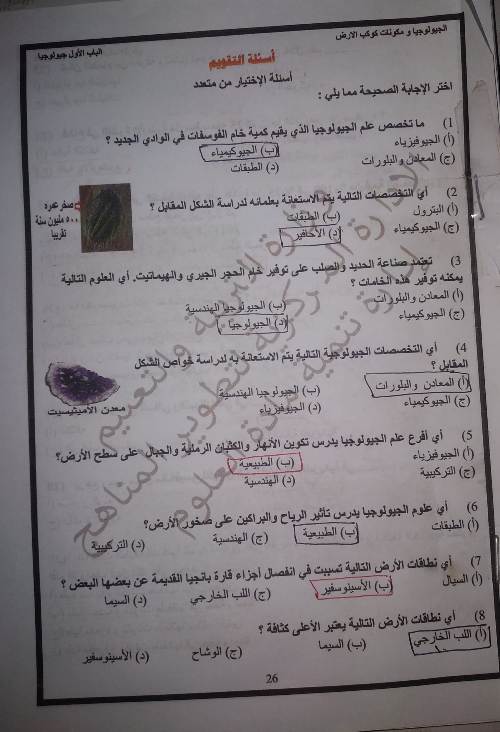 الجيولوجيا و مكونات كوكب الأرض
الباب الأول جيولوجيا
أسئلة التقويم
أسئلة الإختيار من متعدد
اختر الإجابة الصحيحة مما يلي :
1) ما تخصص علم الجيولوجيا الذي يقيم كمية خام الفوسفات في الوادي الجديد ؟
(أ) الجيوفيزياء (ب) الجيوكيمياء
(ج) المعادن والبلورات (د) الطبقات
2) أي التخصصات التالية يتم الاستعانة بعلمائه لدراسة الشكل المقابل ؟
(أ) البترول (ب) الطبقات
(ج) الجيوكيمياء (د) الأحافير
صخر عمره
٥٠٠ مليون سنة
تقريبا
3) تعتمد صناعة الحديد والصلب على توفير خام الحجر الجيري والهيماتيت. أي العلوم التالية
يمكنه توفير هذه الخامات ؟
(أ) المعادن والبلورات (ب) الجيولوجيا الهندسية
(ج) الجيوكيمياء (د) الجيولوجيا
4) أي التخصصات الجيولوجية التالية يتم الاستعانة به لدراسة خواص الشكل
المقابل ؟
(أ) المعادن والبلورات (ب) الجيولوجيا الهندسية
(ج) الجيوكيمياء (د) الجيوفيزياء
معدن الأميثيست
5) أي أفرع علم الجيولوجيا يدرس تكوين الأنهار والكثبان الرملية والجبال على سطح الأرض؟
(أ) الجيوفيزياء (ب) الطبيعية
(ج) التركيبية (د) الهندسية
6) أي علوم الجيولوجيا يدرس تأثير الرياح والبراكين على صخور الأرض؟
(أ) الطبقات (ب) الطبيعية (ج) الهندسية (د) التركيبية
7) أي نطاقات الأرض التالية تسببت في انفصال أجزاء قارة بانجيا القديمة عن بعضها البعض ؟
(أ) السيال (ب) الأسينوسفير (ج) اللب الخارجي (د) السيما
8) أي نطاقات الأرض التالية يعتبر الأعلى كثافة ؟
(أ) اللب الخارجي (ب) السيما (ج) الوشاح (د) الأسينوسفير
26